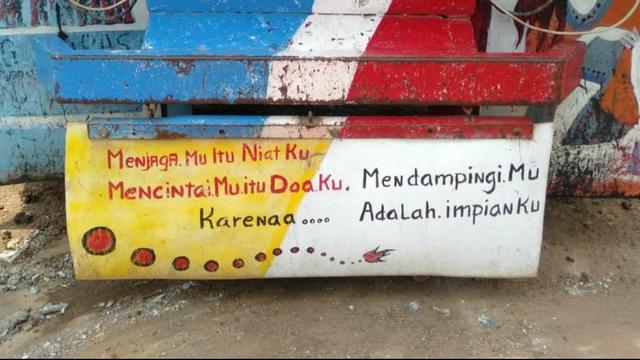 Menjaga.Mu Itu NiatKu
Mencintai.Mu.itu Doa.Ku. Mendampingi.Mu
Karenaa.... AdaLah.impianKu